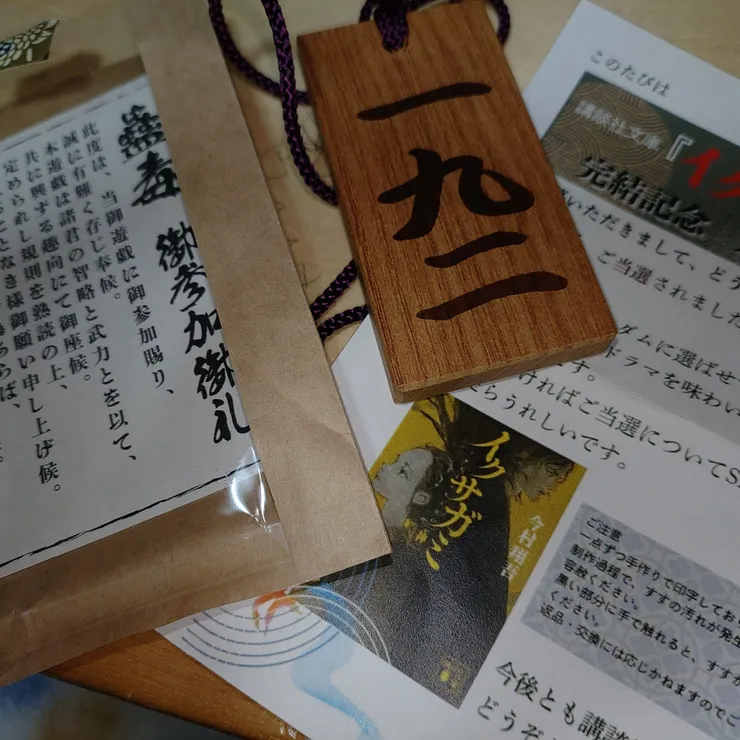 蠱毒
御参加御礼
此度は、当御遊戯に御参加賜り、
誠に有難く存じ奉候。
本遊戯は諸君の智略と武力とを以て、
共に興ずる趣向にて御座候。
定められし規則を熟読の上、
なき様御願い申し上げ候。
一九二
このたびは
講談社文庫『イク
完結記念
いただきまして、どう
ご当選されました
ダムに選ばせ
ドラマを味わい
ければご当選についてS
らうれしいです。
イクサガミ
今村翔吾
ご注意
一点ずつ手作りで印字してお
制作過程で、すすの汚れが発生
容赦ください。
黒い部分に手で触れると、すすが
ください。
返品・交換には応じかねますのでご
今後とも講談
どうぞ